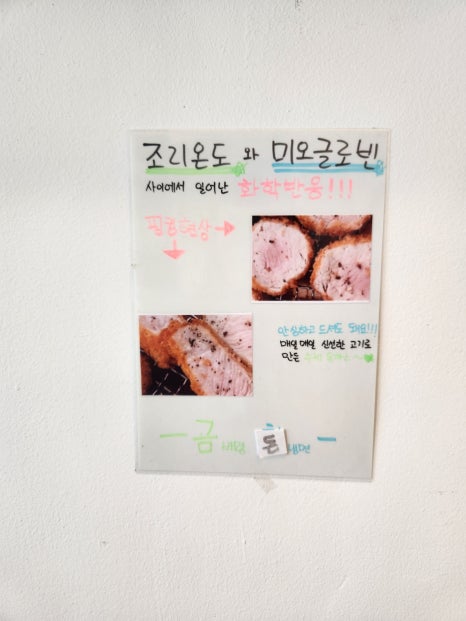 조리온도 와 미오글로빈
사이에서 일어난 화학반응!!!
핑킹현상
안심하고 드셔도 돼요!!!
매일매일 신선한 고기로
만든 수제 돈까스~
금 돈
냉면